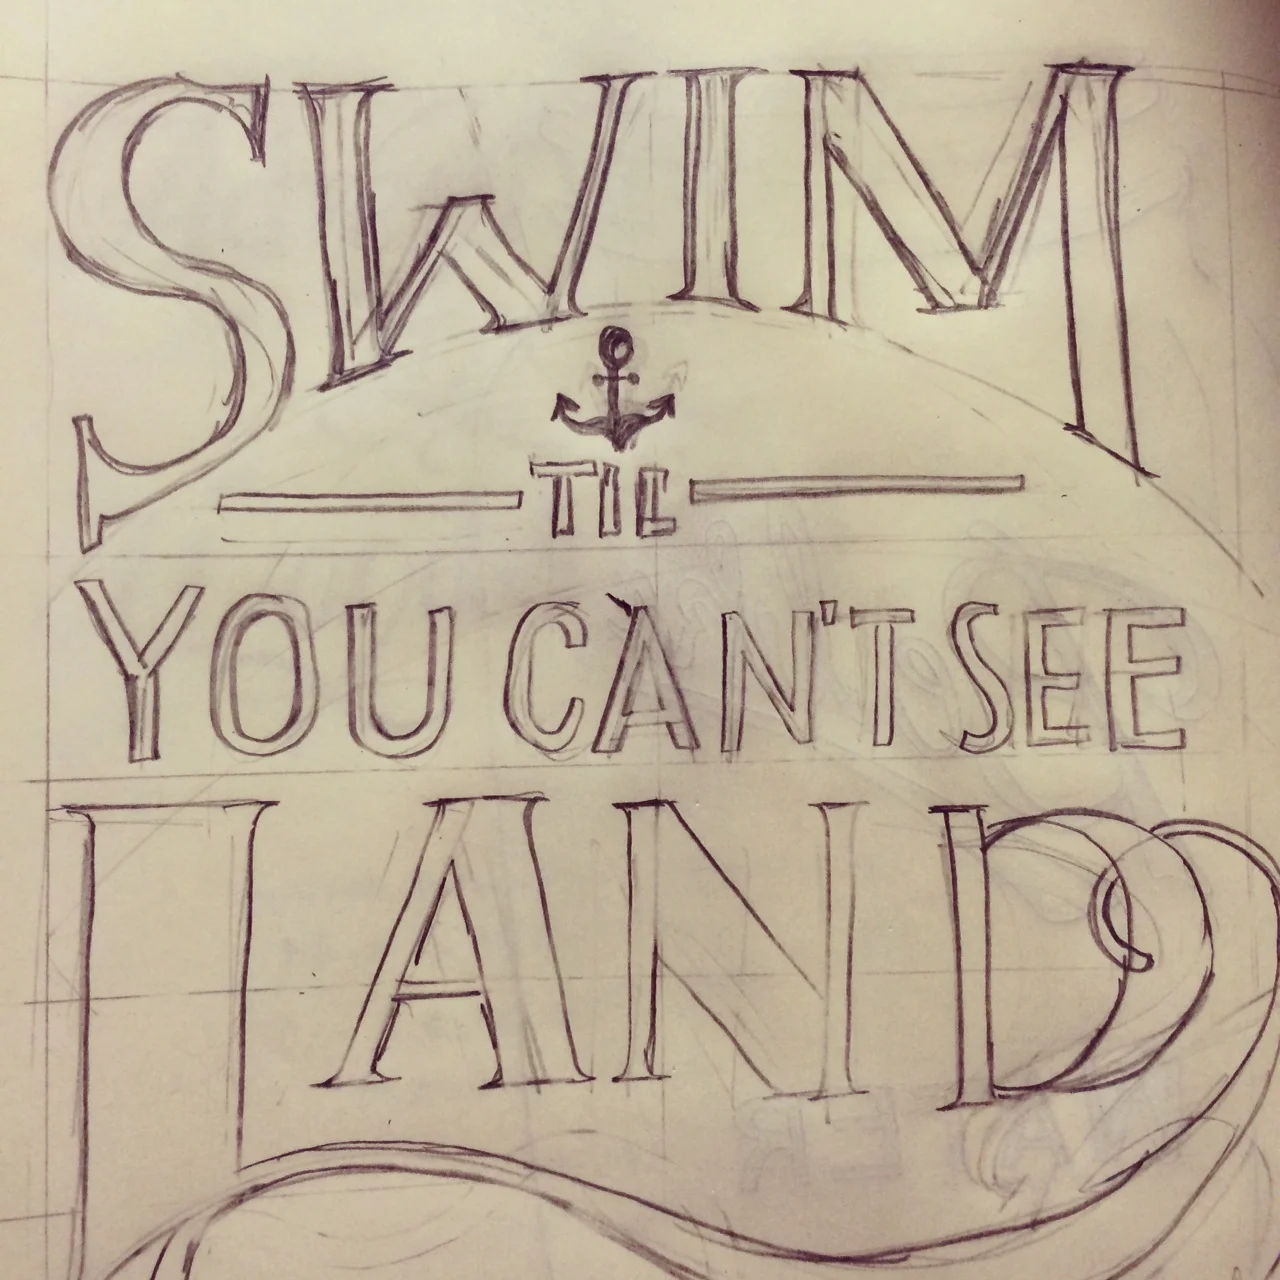 SWIM
TIL
YOU CAN'T SEE
LAND